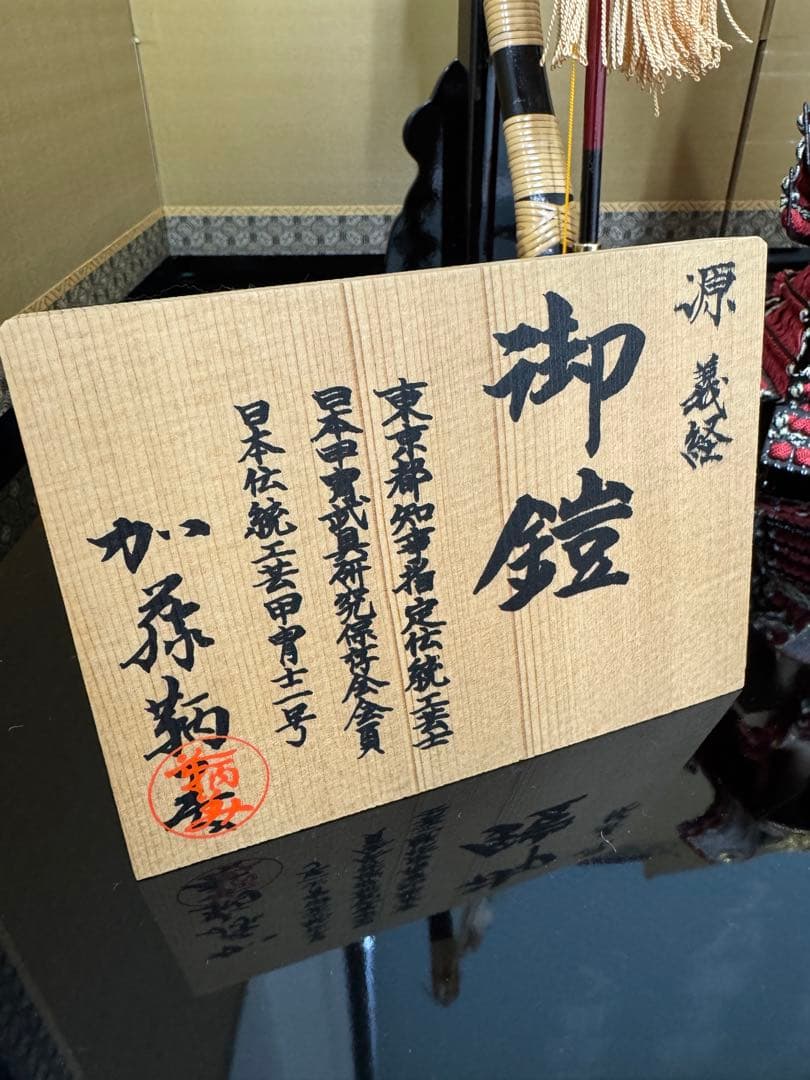 源義経
御鎧
東京都知事指定伝統工芸士
日本甲冑武具研究保存会会員
日本伝統工芸甲冑士一号
加藤鞆